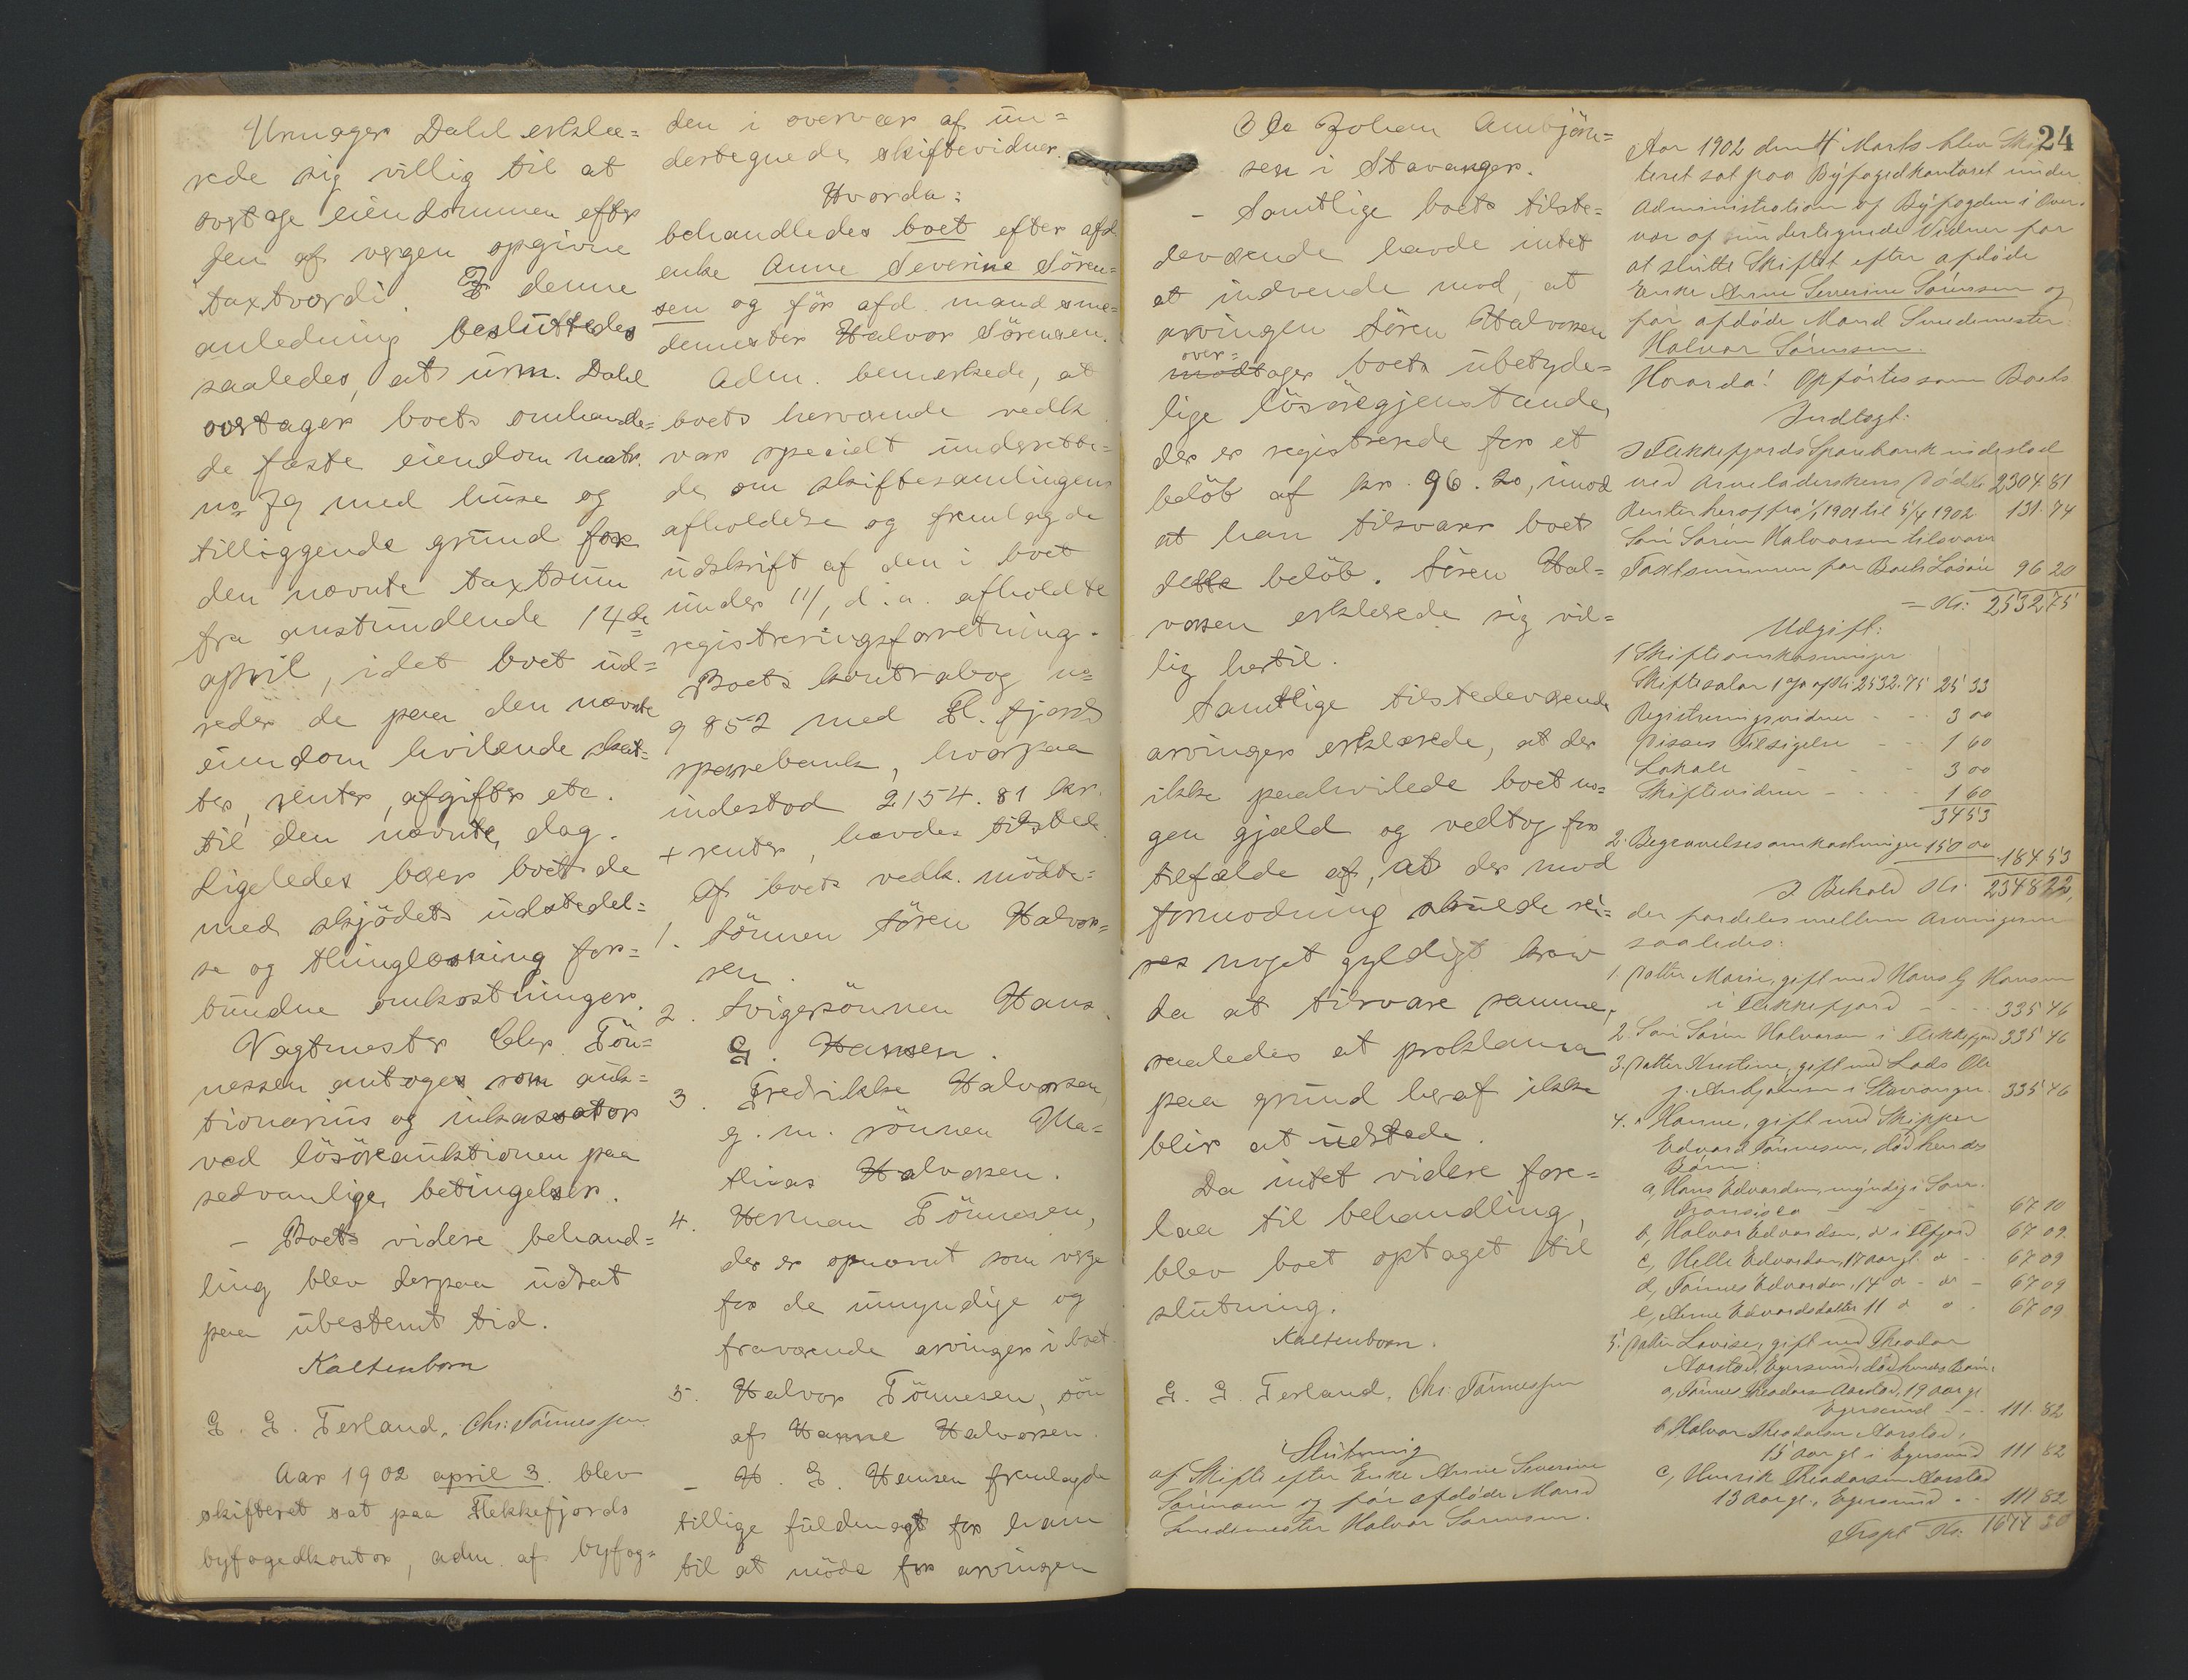 Urmager Dahl erklæ=
rede sig villig til at
overtage eiendommen efter
den af vergen opgivne
taxtværdi. I denne
anledning besluttedes
saaledes, at urm. Dahl
overtager boets omhandle=
de faste eiendom matr.
no med huse og
tilliggende grund for
den nævnte taxtsum
fra anstundende 14de
april, idet boet ud=
reder de paa den nævnte
eiendom hvilende skat=
ter, renter, afgifter etc.
til den nævnte dag.
Ligeledes bærer boet de
med skjødets udstedel=
se og thinglæsning for=
bundne omkostninger.
Vegtmester Chr. Tön=
nessen antoges som auk=
tionarius og inkassator
ved lösöreauktionen paa
sedvanlige betingelser.
- Boets videre behand=
ling blev derpaa udsat
paa ubestemt tid.
Kaltenborn
G. G. Terland. Chr: Tönnessen
Aar 1902 april 3. blev
skifteret sat paa Flekkefjords
byfogedkontor, adm. af byfog=
den i overvær af un=
dertegnede skiftevidner.
Hvorda:
behandledes boet efter afd.
enke Anne Severine Sören=
sen og för afd. mand sme=
demester Halvor Sörensen.
Adm. bemerkede, at
boets herværende vedk.
var specielt underrette=
de om skiftesamlingens
afholdelse og fremlagde
udskrift af den i boet
under 11/1 d. a. afholdte
registreringsforretning.
Boets kontrabog no
9852 med Fl.fjords
sparebank, hvorpaa
indestod 2154.81 kr.
+ renter, havdes tilstede.
Af boets vedk. mödte:
1. Sönnen Sören Halvor=
sen.
2. Svigersönnen Hans
G. Hansen.
3. Fredrikke Halvorsen,
g. m. sönnen Ma=
thias Halvorsen.
4. Herman Tönnesen,
der er opnævnt som verge
for de umyndige og
fraværende arvinger i boet.
5. Halvor Tönnesen, sön
af Hanne Halvorsen.
- H. G. Hansen fremlagde
tillige fuldmagt for ham
til at möde for arvingen
Ole Johan Ambjörn=
sen i Stavanger.
- Samtlige boets tilste=
deværende havde intet
at indvende mod, at
arvingen Sören Halvorsen
over=
modtager boets ubetyde=
lige lösöregjenstande,
der er registrerede for et
belöb af kr. 96.20, imod
at han tilsvarer boet
dette belöb. Sören Hal=
vorsen erklærede sig vil=
lig hertil.
Samtlige tilstedeværende
arvinger erklærede, at der
ikke paahvilede boet no=
gen gjæld og vedtog for
tilfælde af, at der mod
formodning skulde rei=
ses noget gyldigt krav
da at tilsvare samme,
saaledes at proklama
paa grund heraf ikke
blir at udstede.
Da intet videre fore=
laa til behandling,
blev boet optaget til
slutning.
Kaltenborn.
G. G. Terland. Chr: Tönnessen
Slutning
af Skifte efter Enke Anne Severine
Sörensen og för afdøde Mand
Smedemester Halvor Sörensen.
24
Aar 1902 den 4 Marts blev Skif
teret sat paa Byfogedkontoret under
Administration af Byfogden i Over-
vær af undertegnede Vidner for
at slutte Skiftet efter afdøde
Enke Anne Severine Sörensen og
för afdøde Mand Smedemester
Halvor Sörensen.
Hvorda! Opförtes som Boets
Indtægt:
I Flekkefjords Sparebank indestod
ved Arveladerskens Død kr 2304.81
Renter heraf fra 1/1 1901 til 5/4 1902 131.74
Sön Sören Halvorsen tilsvarer
Taxtsummen for Boets Lösöre 96 20
= Kr: 2532 75
Udgift:
1 Skifteomkostninger
Skiftesalær 1 % af Kr: 2532.75 25 33
Registreringsvidner - - 3 00
Disses Tilsigelse - - 1 60
Lokale - - - 3 00
Skiftevidner - - - 1 60
34 53
2. Begravelsesomkostninger 150 00 184 53
I Behold Kr: 2348 22,
der fordeles mellem Arvingerne
saaledes:
1. Datter Marie, gift med Hans G Hansen
i Flekkefjord - - - 335 46
2. Sön Sören Halvorsen i Flekkefjord 335 46
3. Datter Kristine, gift med Lods Ole
J. Ambjørnsen i Stavanger. 335 46
4. " Hanne, gift med Skipper
Edvard Tönnesen, død hendes
Børn:
a, Hans Edvardsen, myndig i San.
Fransisco - - - 67 10
b, Halvor Edvardsen, do i Flfjord 67 09
c, Helle Edvardsen, 17 aar gl. do - 67 09
d, Tönnes Edvardsen, 14 do - do - 67 09
e, Anne Edvardsdatter 11 do do - 67 09
5. Datter Lovise, gift med Theodor
Aarstad, Egersund, død hendes Børn:
a, Tönnes Theodorsen Aarstad, 19 aar gl
Egersund - - 111.82
b, Halvor Theodorsen Aarstad,
15 aar gl i Egersund 111 82
c, Henrik Theodorsen Aarstad
13 aar gl., Egersund - - 111 82
Trspt Kr: 1677 30